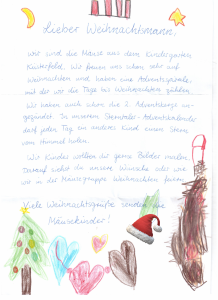 Lieber Weihnachtsmann,
wir sind die Mäuse aus dem Kindergarten
Knisterfeld. Wir freuen uns schon sehr auf
Weihnachten und haben eine Adventsspirale,
mit der wir die Tage bis Weihnachten zählen.
Wir haben auch schon die 2. Adventskerze an-
gezündet. In unserem Sternentaler-Adventskalender
darf jeden Tag ein anderes Kind einen Stern
vom Himmel holen.
Wir Kinder wollten dir gerne Bilder malen.
Darauf siehst du unsere Wünsche oder wie
wir in der Mäusegruppe Weihnachten feiern.
Viele Weihnachtsgrüße senden die
Mäusekinder!